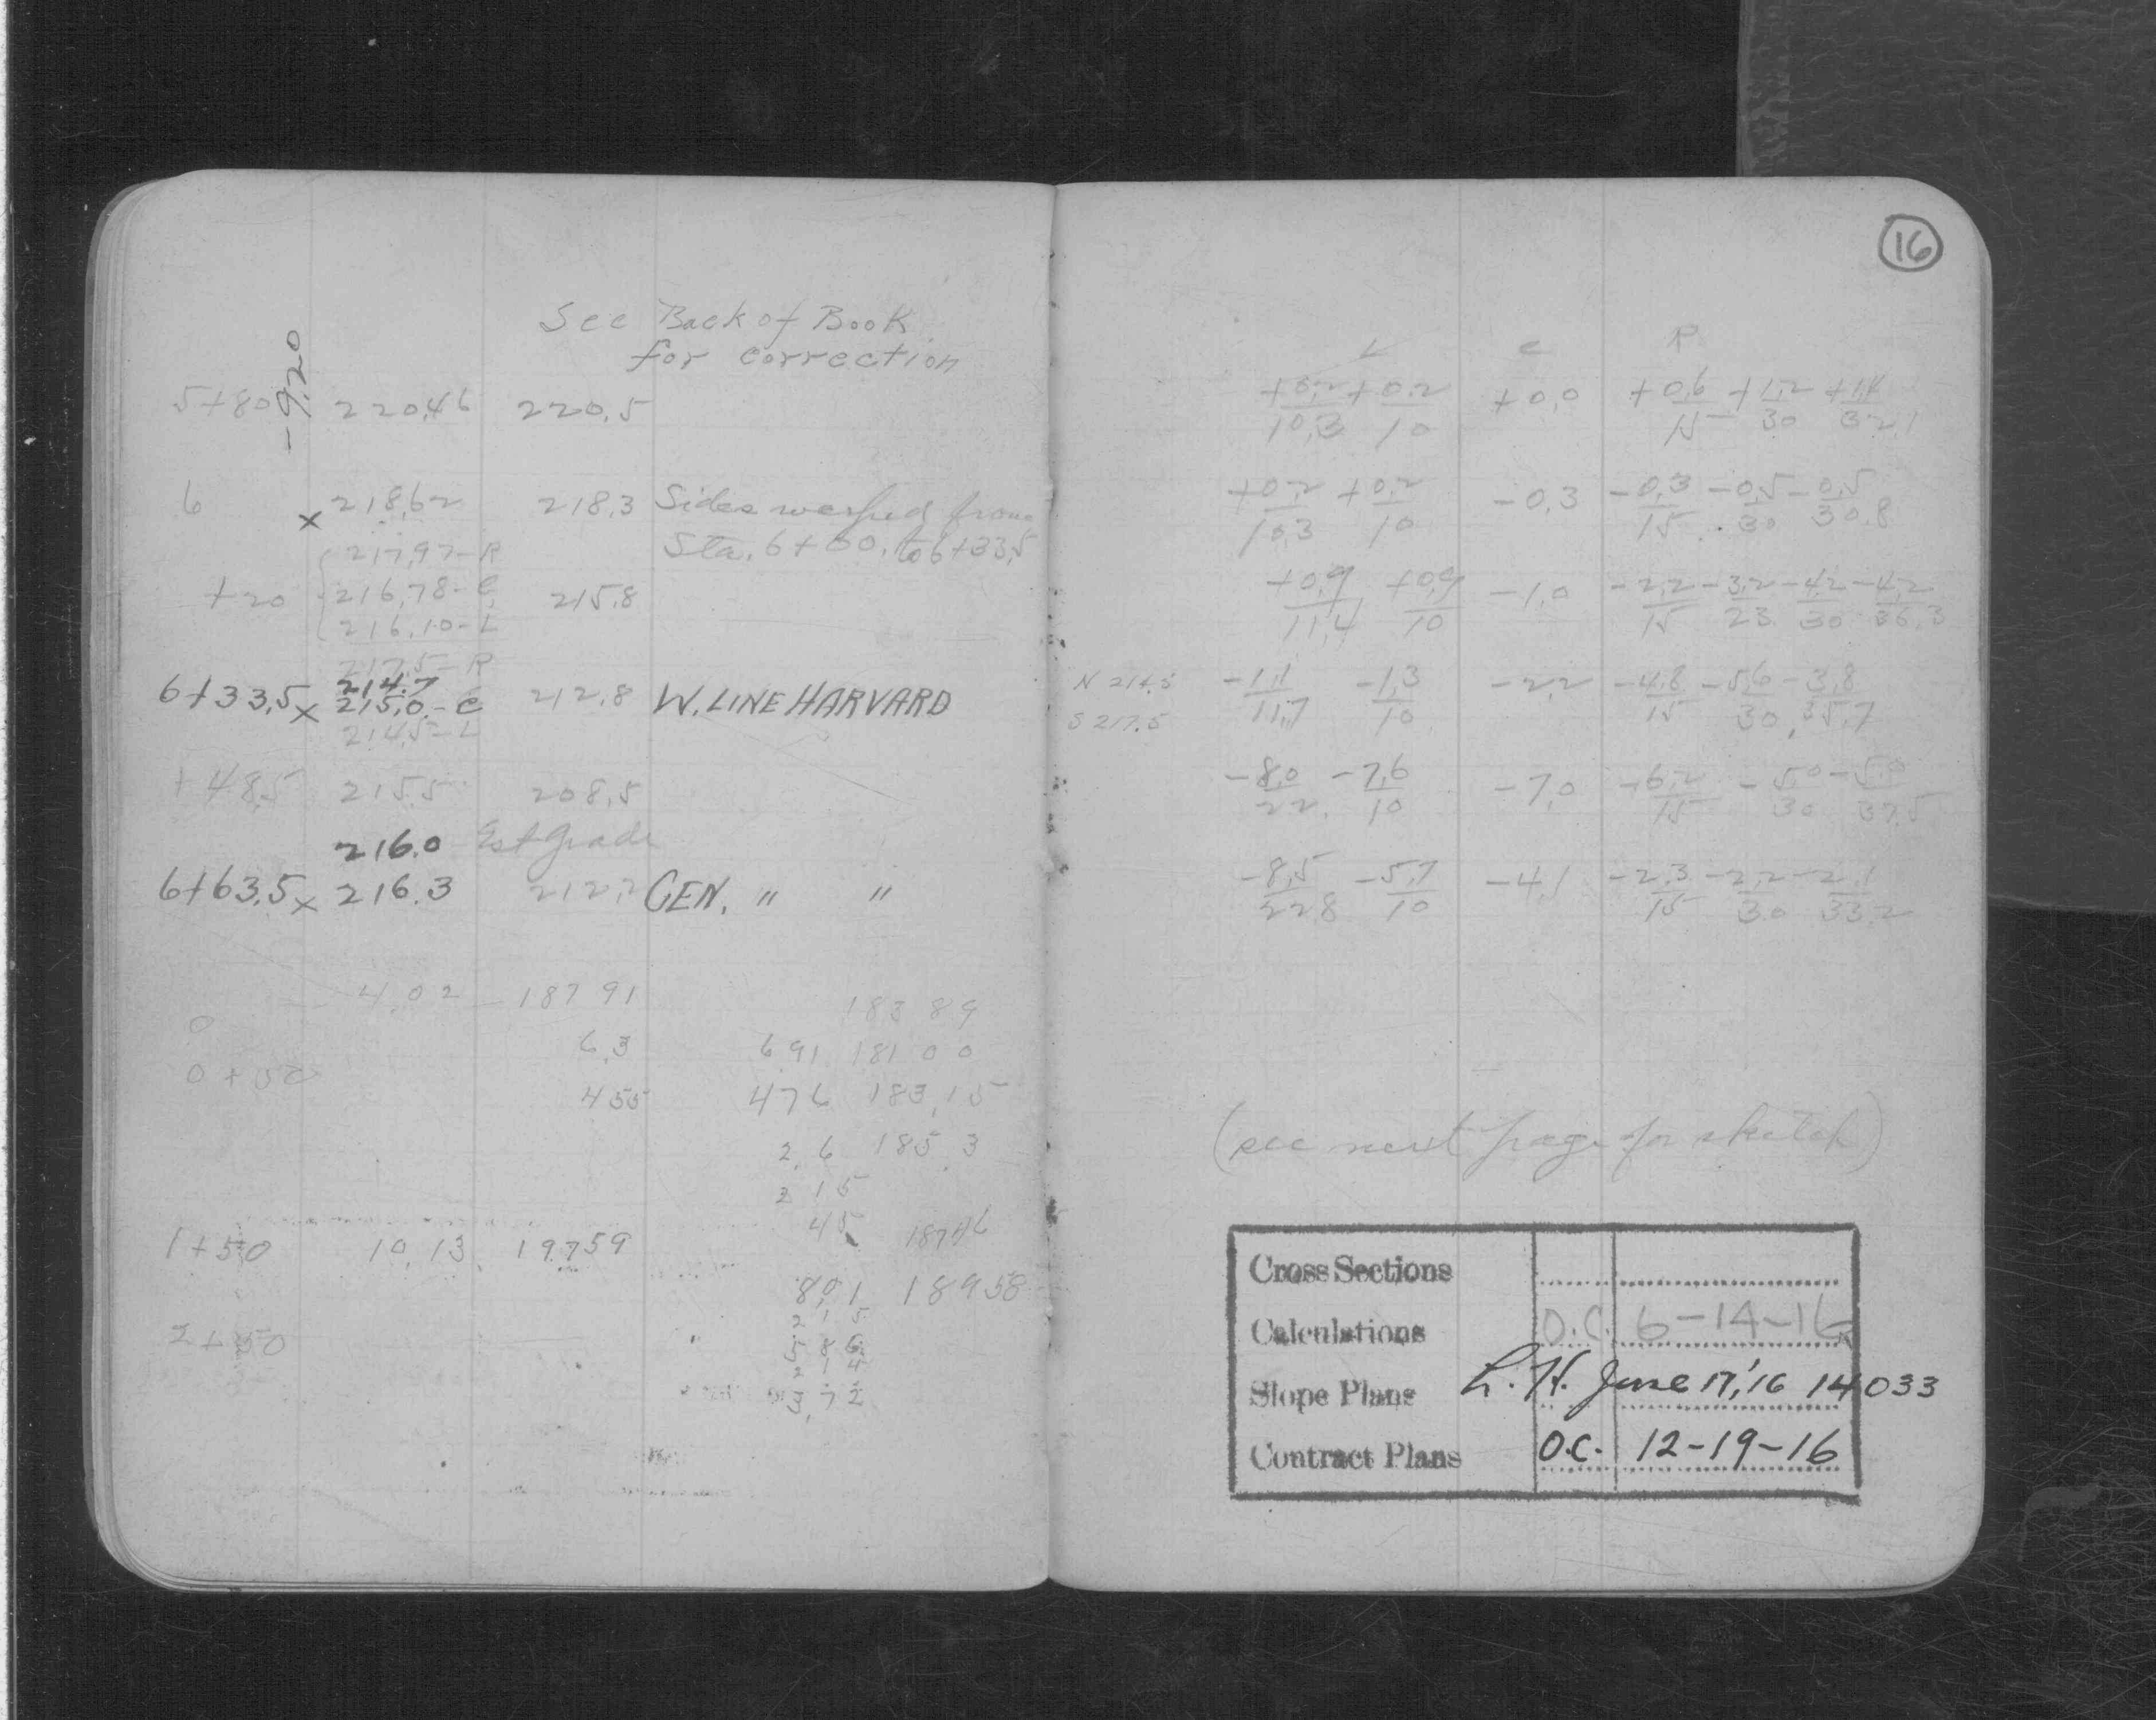 See Back of Book
for correction
-9.20
5+80 220.46 220.5
6 x 218.62 218.3 Sides warped from
Sta. 6+00. to 6+33.5
217.97-R
+20 216.78-C 215.8
216.10-L
217.5-R
214.7
6+33.5 x 215.0-C 212.8 W. LINE HARVARD
214.5-L
+48.5 215.5 208.5
216.0 Est Grade
6+63.5 x 216.3 212.2 CEN. " "
4.02 187 91
183 89
0
6.3 6 91 181 00
0+50
4 55 4 76 183.15
2.6 185.3
2 15
45 187 46
1+50 10.13 197 59
8.01 189 58
2 1 5
2+50
5 8 6
2 1 4
3.72
16
L C R
+0.2 +0.2 +0.0 +0.6 +1.2 +1.4
10.3 10 15 30 32.1
+0.2 +0.2 -0.3 -0.3 -0.5 -0.5
10.3 10 15 30 30.8
+0.9 +0.9 -1.0 -2.2 -3.2 -4.2 -4.2
11.4 10 15 23 30 36.3
N 214.5 -1.1 -1.3 -2.2 -4.8 -5.6 -3.8
S 217.5 11.7 10 15 30 35.7
-8.0 -7.6 -7.0 -6.2 -5.0 -5.0
22. 10 15 30 37.5
-8.5 -5.7 -4.1 -2.3 -2.2 -2.1
22.8 10 15 30 33.2
(see next page for sketch)
Cross Sections
Calculations O.C. 6-14-16
Slope Plans L.H. June 17,'16 14033
Contract Plans O.C. 12-19-16